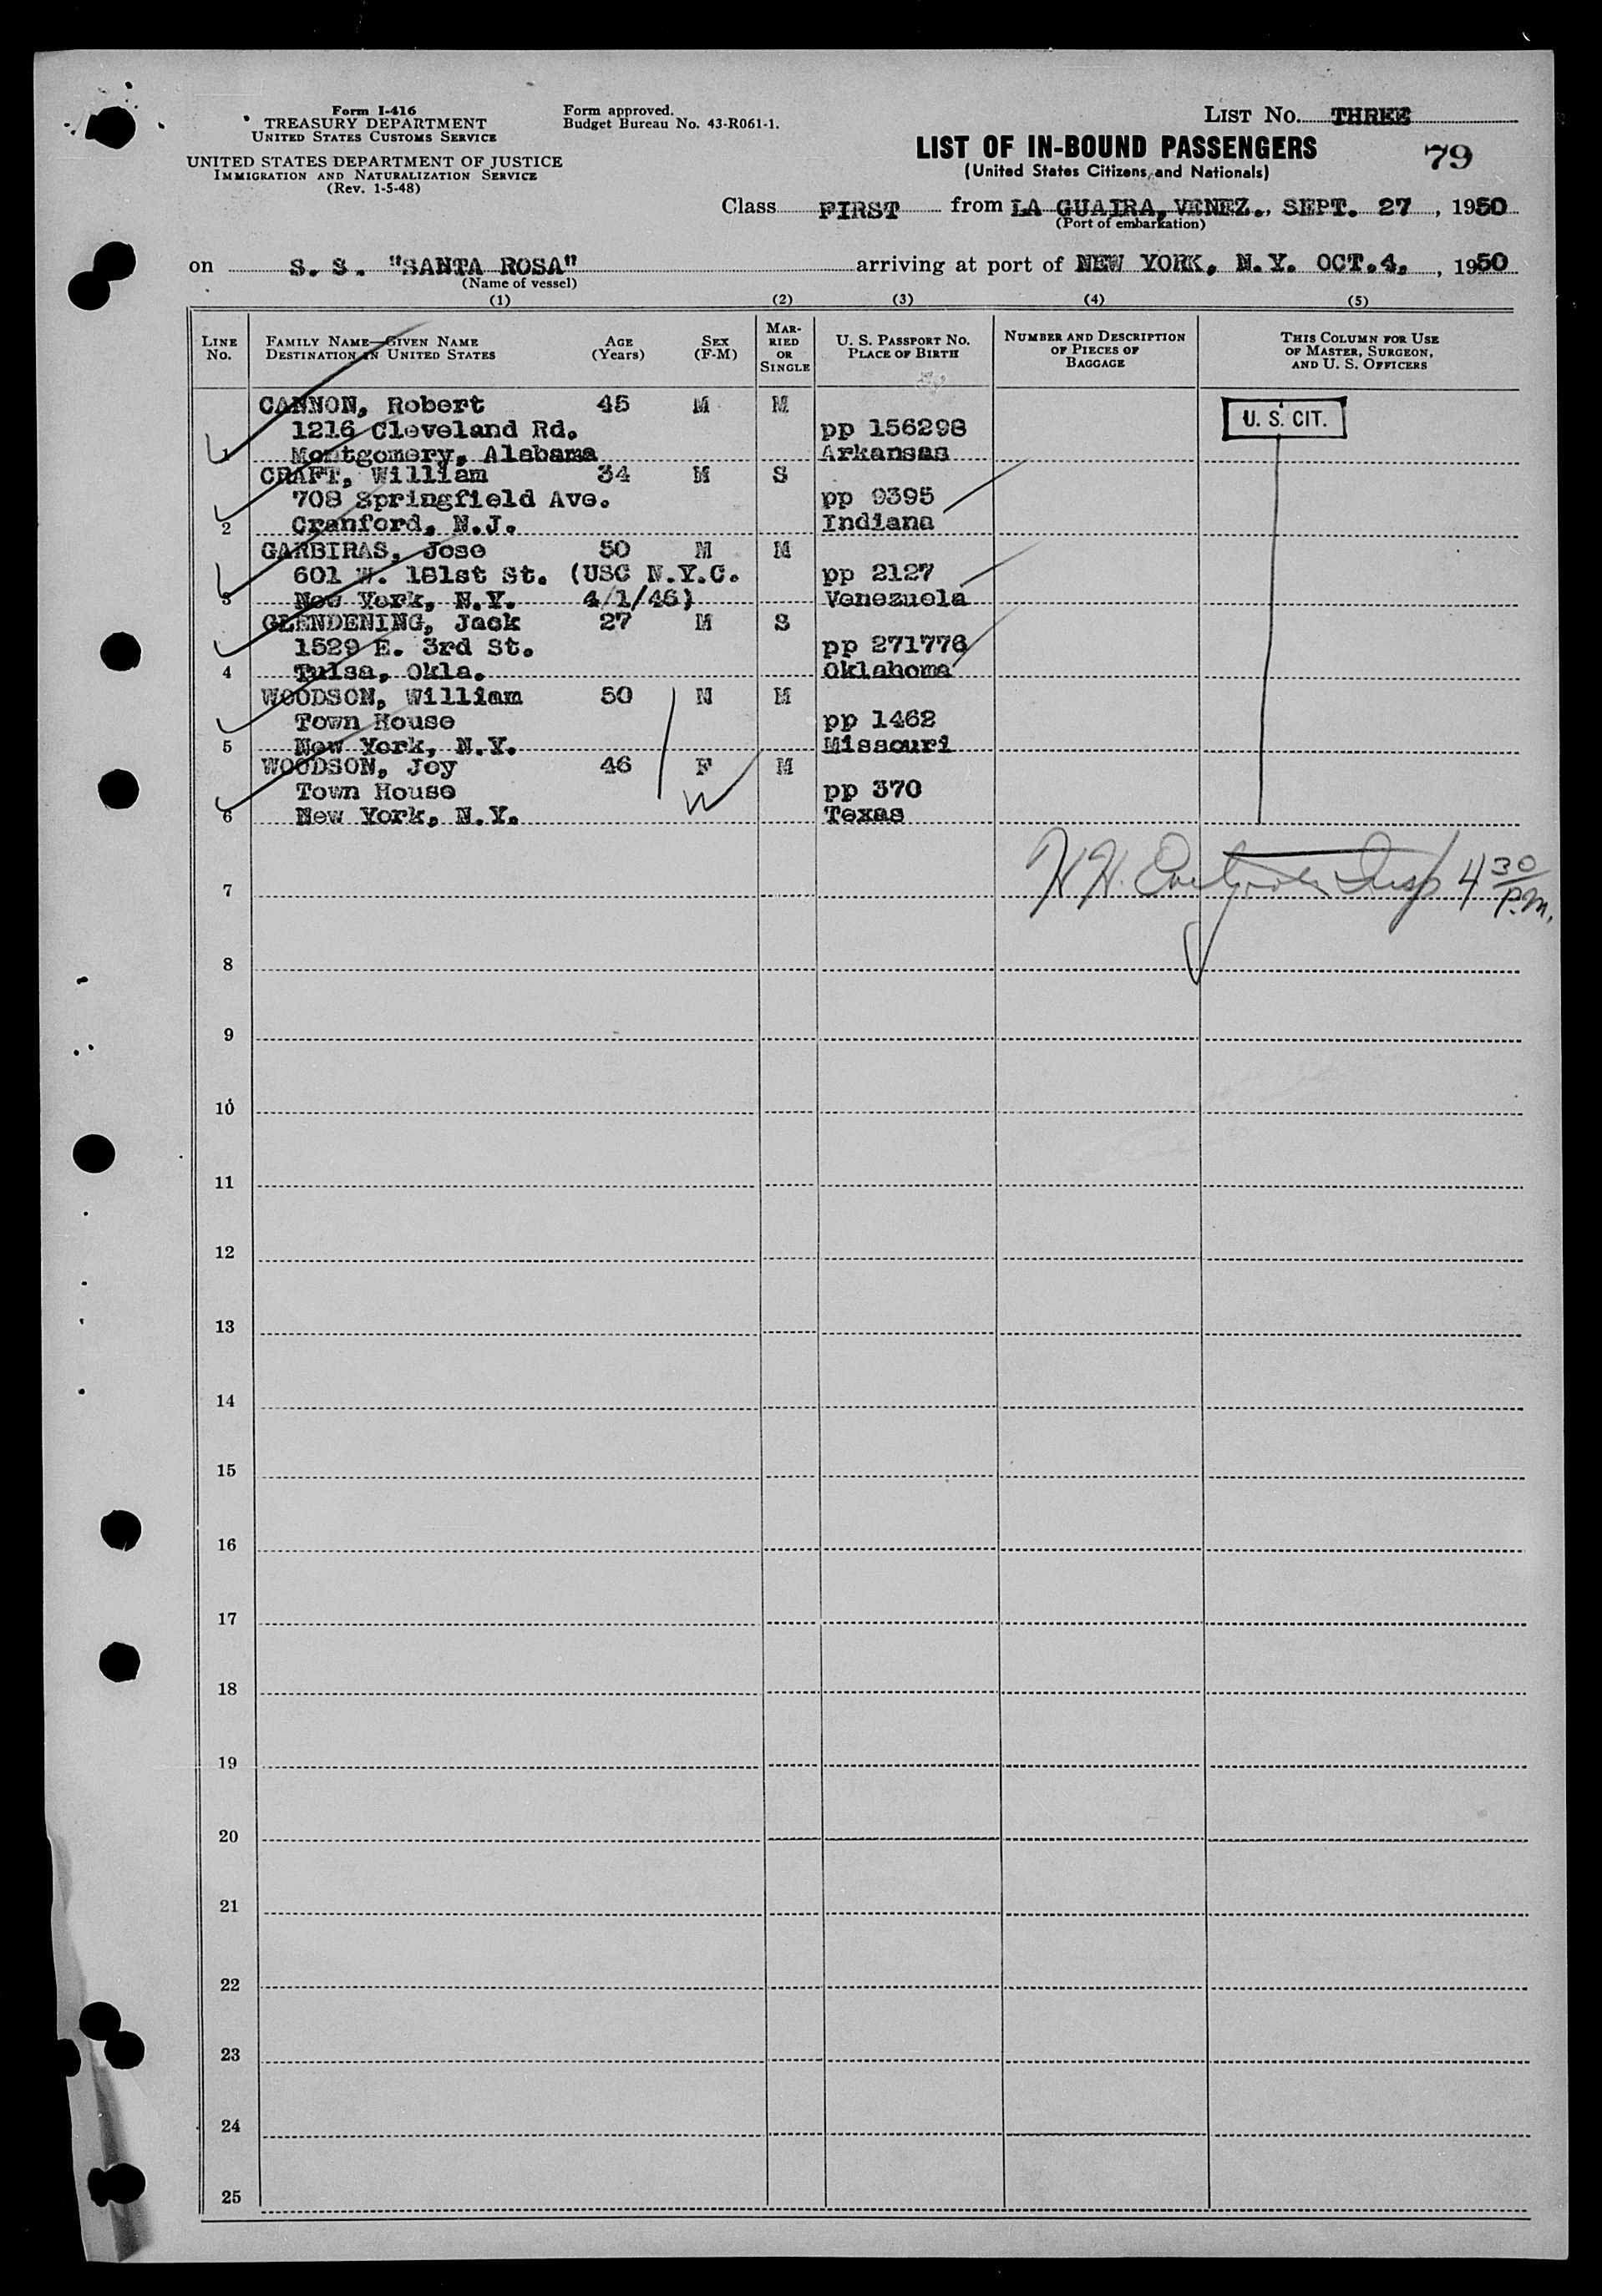 Form I-416
TREASURY DEPARTMENT
UNITED STATES CUSTOMS SERVICE
UNITED STATES DEPARTMENT OF JUSTICE
IMMIGRATION AND NATURALIZATION SERVICE
(Rev. 1-5-48)
Form approved.
Budget Bureau No. 43-R061-1.
LIST No. THREE
LIST OF IN-BOUND PASSENGERS
(United States Citizens and Nationals)
79
Class FIRST from LA GUAIRA, VENEZ., SEPT. 27, 1950
(Port of embarkation)
on S. S. "SANTA ROSA" arriving at port of NEW YORK, N.Y. OCT.4, 1950
(Name of vessel)
(1) (2) (3) (4) (5)
LINE No.
FAMILY NAME—GIVEN NAME
DESTINATION IN UNITED STATES
AGE (Years)
SEX (F-M)
MARRIED OR SINGLE
U. S. PASSPORT No.
PLACE OF BIRTH
NUMBER AND DESCRIPTION OF PIECES OF BAGGAGE
THIS COLUMN FOR USE OF MASTER, SURGEON, AND U. S. OFFICERS
CANNON, Robert 45 M M
U. S. CIT.
1216 Cleveland Rd. pp 156298
1 Montgomery, Alabama Arkansas
CRAFT, William 34 M S
708 Springfield Ave. pp 9395
2 Cranford, N.J. Indiana
GARBIRAS, Jose 50 M M
601 W. 181st St. (USC N.Y.C. pp 2127
3 New York, N.Y. 4/1/46) Venezuela
GLENDENING, Jack 27 M S
1529 E. 3rd St. pp 271776
4 Tulsa, Okla. Oklahoma
WOODSON, William 50 M M
Town House pp 1462
5 New York, N.Y. Missouri
WOODSON, Joy 46 F M
W
Town House pp 370
6 New York, N.Y. Texas
H H. Insp 4 30 P.M.
7
8
9
10
11
12
13
14
15
16
17
18
19
20
21
22
23
24
25